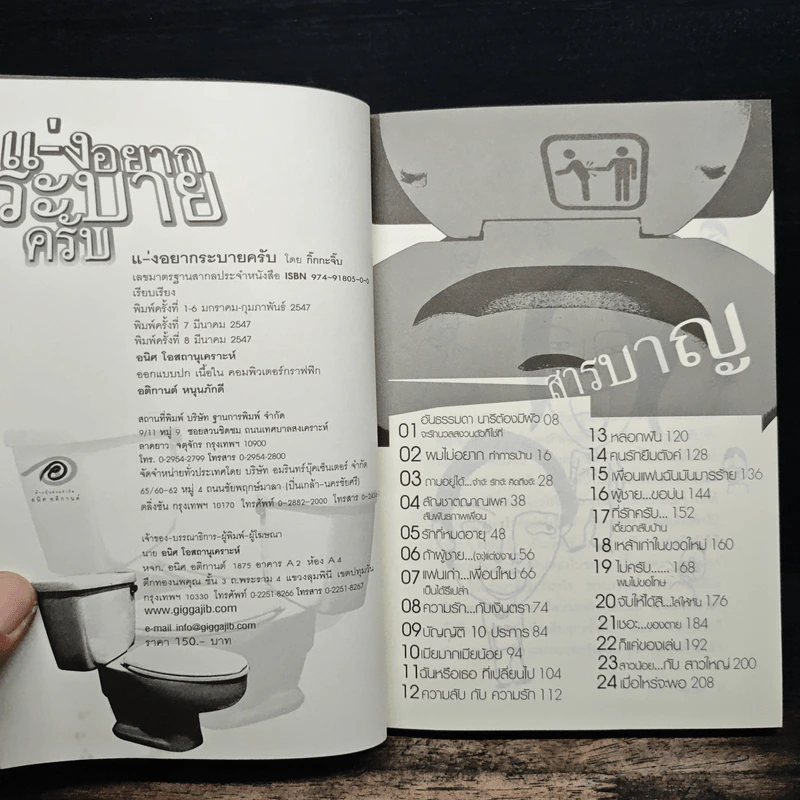 แ-่งอยาก
ระบาย
ครับ
แ-่งอยากระบายครับ โดย กิ๊กกะจิ๊บ
เลขมาตรฐานสากลประจำหนังสือ ISBN 974-91805-0-0
เรียบเรียง
พิมพ์ครั้งที่ 1-6 มกราคม-กุมภาพันธ์ 2547
พิมพ์ครั้งที่ 7 มีนาคม 2547
พิมพ์ครั้งที่ 8 มีนาคม 2547
อนิศ โอสถานุเคราะห์
ออกแบบปก เนื้อใน คอมพิวเตอร์กราฟฟิก
อติกานต์ หนุนภักดี
สถานที่พิมพ์ บริษัท ฐานการพิมพ์ จำกัด
9/11 หมู่ 9 ซอยสวนชิดชม ถนนเทศบาลสงเคราะห์
ลาดยาว จตุจักร กรุงเทพฯ 10900
โทร. 0-2954-2799 โทรสาร 0-2954-2800
จัดจำหน่ายทั่วประเทศโดย บริษัท อมรินทร์บุ๊คเซ็นเตอร์ จำกัด
65/60-62 หมู่ 4 ถนนชัยพฤกษ์มาลา (ปิ่นเกล้า-นครชัยศรี)
ตลิ่งชัน กรุงเทพฯ 10170 โทรศัพท์ 0-2882-2000 โทรสาร
อนิศ อติกานต์
เจ้าของ-บรรณาธิการ-ผู้พิมพ์-ผู้โฆษณา
นาย อนิศ โอสถานุเคราะห์
หจก. อนิศ อติกานต์ 1875 อาคาร A2 ห้อง A4
ตึกทองนพคุณ ชั้น 3 ถ.พระราม 4 แขวงลุมพินี เขตปทุมวัน
กรุงเทพฯ 10330 โทรศัพท์ 0-2251-8266 โทรสาร 0-2251-8267
www.giggajib.com
e-mail info@giggajib.com
ราคา 150.- บาท
สารบาญ
01 อันธรรมดา นารีต้องมีผัว 08
จะรักนวลสงวนตัวก็ใช่ที่
02 ผมไม่อยาก ทำการบ้าน 16
03 ถามอยู่ได้...จ้าจ๊ะ รักจ๊ะ คิดถึงจ๊ะ 28
04 สัญชาตญาณเพศ 38
สัมพันธภาพเพื่อน
05 รักที่หมดอายุ 48
06 ถ้าผู้ชาย...(จะ)แต่งงาน 56
07 แฟนเก่า...เพื่อนใหม่ 66
เป็นได้รึเปล่า
08 ความรัก...กับเงินตรา 74
09 บัญญัติ 10 ประการ 84
10 เมียมากเมียน้อย 94
11 ฉันหรือเธอ ที่เปลี่ยนไป 104
12 ความลับ กับ ความรัก 112
13 หลอกฟัน 120
14 คนรักยืมตังค์ 128
15 เพื่อนแฟนฉันมันมารร้าย 136
16 ผู้ชาย...ขอบ่น 144
17 ที่รักครับ... 152
เดี๋ยวกลับบ้าน
18 เหล้าเก่าในขวดใหม่ 160
19 ไม่ครับ...... 168
ผมไม่ขอโทษ
20 จับให้ได้สิ...ไล่ให้ทัน 176
21 เชอะ...ของตาย 184
22 ก็แค่ของเล่น 192
23 สาวน้อย...กับ สาวใหญ่ 200
24 เมื่อไหร่จะพอ 208